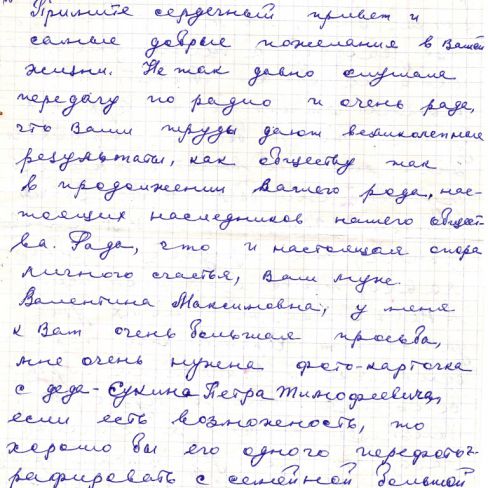 Примите сердечный привет и
самые добрые пожелания в Вашей
жизни. Не так давно слушала
передачу по радио и очень рада,
что Ваши труды дают великолепные
результаты, как обществу так
в продолжении Вашего рода, нас-
тоящих наследников нашего общест-
ва. Рада, что и настоящая опора
личного счастья, Ваш муж.
Валентина Максимовна, у меня
к Вам очень большая просьба,
мне очень нужна фото-карточка
с деда - Сукина Петра Тимофеевича,
если есть возможность, то
хорошо бы его одного перефотог-
рафировать с семейной большой